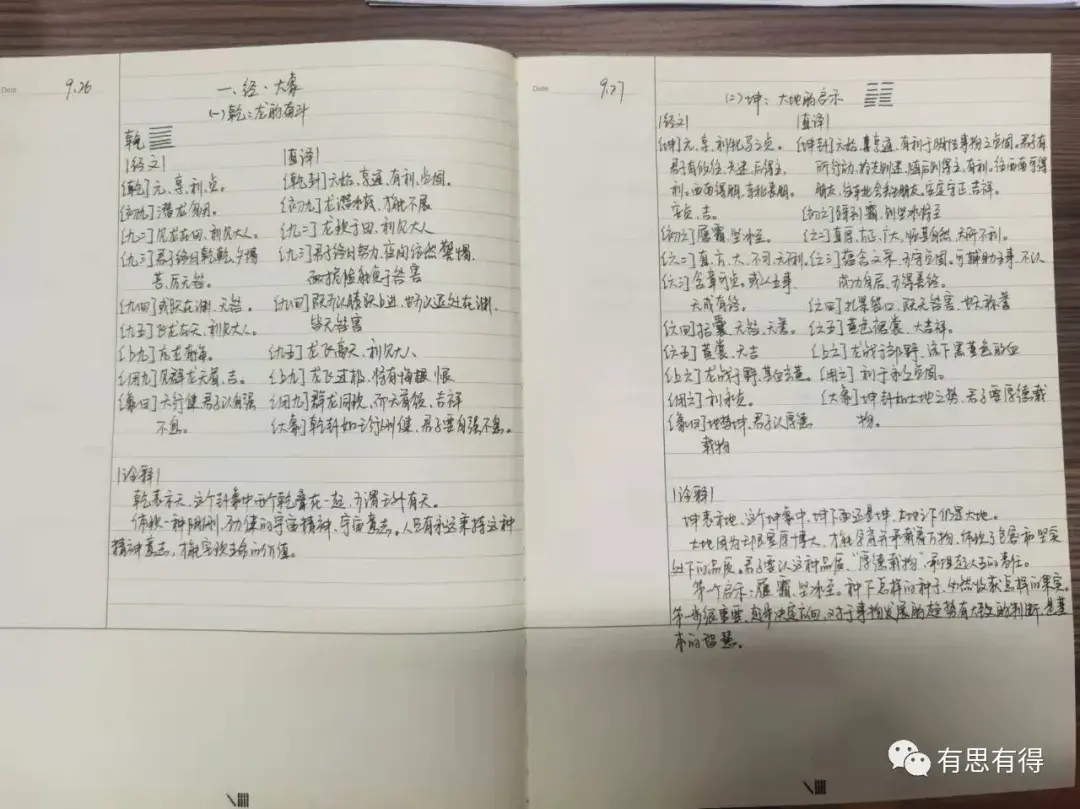 Date
9.26
一、经·大象
(一)乾:龙的奋斗
乾
|经文|
[乾]元、亨、利、贞。
[初九]潜龙勿用。
[九二]见龙在田、利见大人。
[九三]君子终日乾乾、夕惕
若、厉无咎。
[九四]或跃在渊、无咎。
[九五]飞龙在天、利见大人。
[上九]亢龙有悔。
[用九]见群龙无首、吉。
[象曰]天行健君子以自强
不息。
|直译|
[乾卦]元始、亨通、有利、贞固。
[初九]龙潜水底、才能不展
[九二]龙跃于田、利见大人
[九三]君子终日努力、夜间依然警惕、
面揽险触免于咎害
[九四]既可以腾跃上进、也可以退处在渊、
皆无咎害
[九五]龙飞高天、利见大人、
[上九]龙飞过极、将有悔恨
[用九]群龙同现、而无首领、吉祥
[大象]乾卦如天行刚健、君子要自强不息。
|诠释|
乾表示天、这个卦象中两个乾叠在一起、可谓天外有天。
体现一种阳刚、劲健的宇宙精神、宇宙意志。人只有永远秉持这种
精神意志、才能实现生命的价值。
Date
9.27
(二)坤:大地的启示
|经文|
[坤]元、亨、利牝马之贞。
君子有攸往、先迷、后得主、
利。西南得朋、东北丧朋。
安贞、吉。
[初六]履霜、坚冰至。
[六二]直、方、大、不习、无不利。
[六三]含章可贞。或从王事、
无成有终。
[六四]括囊、无咎、无誉。
[六五]黄裳、元吉
[上六]龙战于野、其血玄黄。
[用六]利永贞。
[象曰]地势坤、君子以厚德
载物
|直译|
[坤卦]元始、亨通、有利于阴性事物之贞固。君子有
所行动、抢先则迷、随后则得主、有利。往西南可得
朋友、往东北会失掉朋友、安定守正、吉祥。
[初六]踩到霜、则坚冰将至
[六二]直厚、方正、广大、恢其自然、无所不利。
[六三]蕴含文采、可守贞固。可辅助主事、不以
成功自居、可得善终。
[六四]扎紧袋口、既无咎害、也无称誉
[六五]黄色裙裳、大吉祥。
[上六]龙战于郊野、流下黑黄色的血
[用六]利于永久贞固。
[大象]坤卦如大地之势、君子要厚德载
物。
|诠释|
坤表示地、这个坤象中、坤下面还是坤、大地之下仍是大地。
大地因为无限宽厚博大、才能孕育并承载着万物、体现了包容和坚实
处下的品质。君子要以这种品质、“厚德载物”、承担起人生的责任。
第一个启示:履霜、坚冰至。种下怎样的种子、必然收获怎样的果实。
第一步很重要、起步决定方向、对于事物发展的趋势有大致的判断、是基
本的智慧。
有思有得